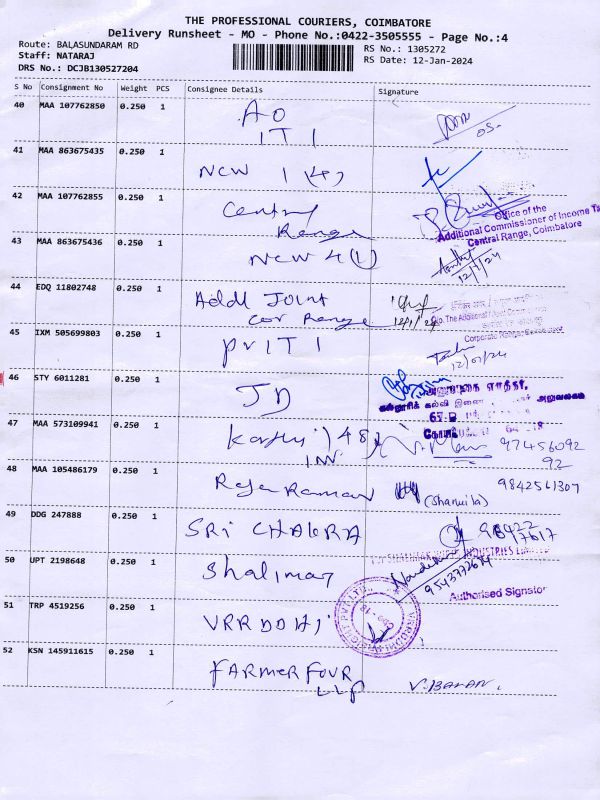 THE PROFESSIONAL COURIERS, COIMBATORE
Delivery Runsheet - MO - Phone No.:0422-3505555 - Page No.:4
Route: BALASUNDARAM RD
RS No.: 1305272
Staff: NATARAJ
RS Date: 12-Jan-2024
DRS No.: DCJB130527204
S No Consignment No Weight PCS Consignee Details Signature
40 MAA 107762850 0.250 1 AO
ITI
05.
41 MAA 863675435 0.250 1 NCW 1 (4)
42 MAA 107762855 0.250 1 Central
Range
Office of the
Additional Commissioner of Income Ta
Central Range, Coimbatore
43 MAA 863675436 0.250 1 NCW 4 (1)
12/1/24
44 EDQ 11802748 0.250 1 Addl Joint
Cor Range
12/1/24
O/o. The Additional
Corporate Range,
45 IXM 505699803 0.250 1 Pr ITI
12/01/24
46 STY 6011281 0.250 1 JD
கல்லூரிக் கல்வி இணை அலுவலகம்
47 MAA 573109941 0.250 1 148
INV
97456092
92
48 MAA 105486179 0.250 1 Raja Raman
(Shamila) 9842561307
49 DDG 247888 0.250 1 SRI CHAKRA
50 UPT 2198648 0.250 1 Shalimar
INDUSTRIES
9543772674
Authorised Signatory
51 TRP 4519256 0.250 1 VRR DDHI
52 KSN 145911615 0.250 1 FARMER FOUR
LLP
V. BALAN.